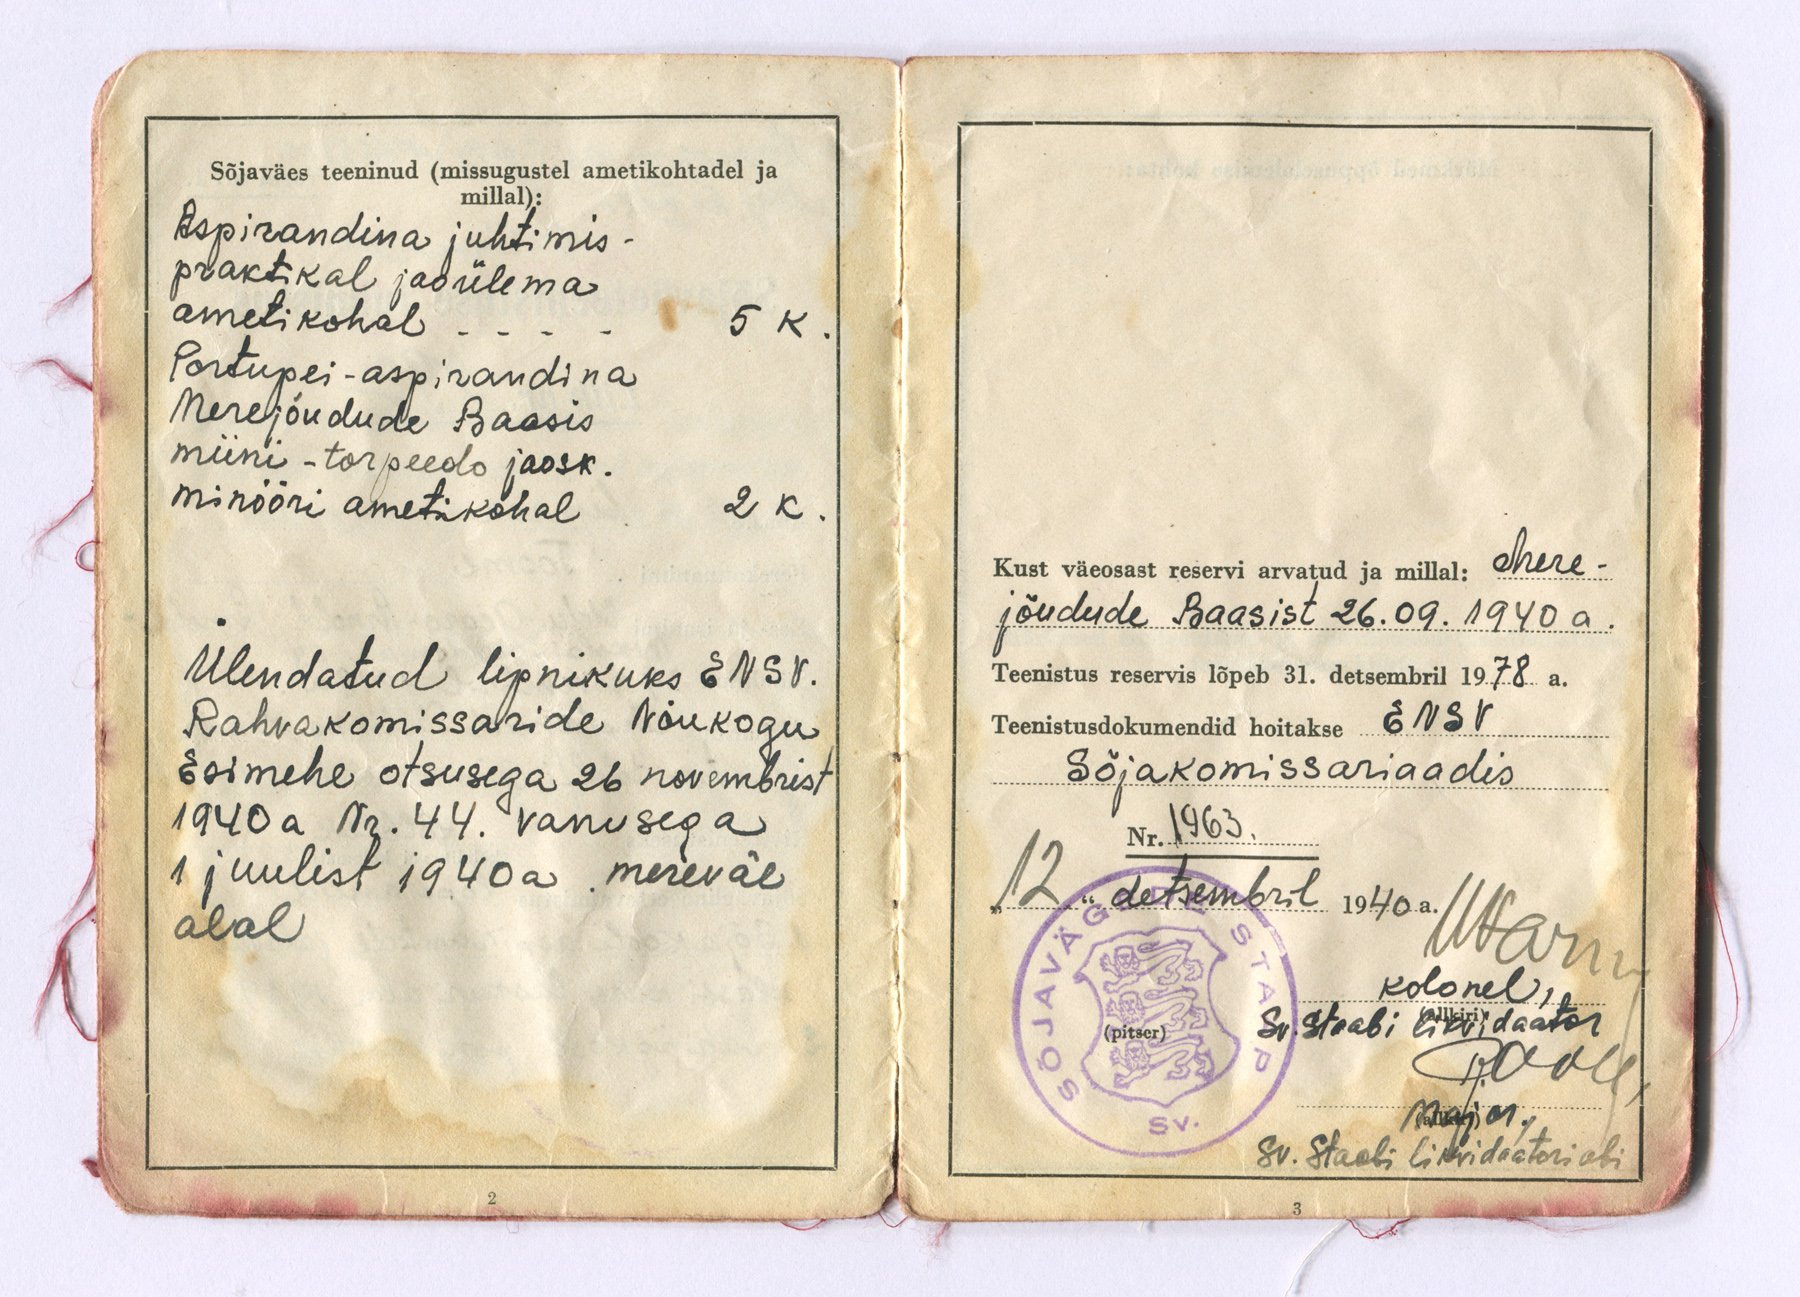 Sõjaväes teeninud (missugustel ametikohtadel ja
millal):
Aspirandina juhtimis-
praktikal jaoülema
ametikohal - - - - 5 K.
Portupei-aspirandina
Merejõudude Baasis
miini-torpeedo jaosk.
minööri ametikohal 2 K.
Ülendatud lipnikuks ENSV.
Rahvakomissaride Nõukogu
Esimehe otsusega 26 novembrist
1940 a Nr. 44. vanusega
1 juulist 1940 a. mereväe
alal
2
Kust väeosast reservi arvatud ja millal: Mere-
jõudude Baasist 26.09.1940 a.
Teenistus reservis lõpeb 31. detsembril 1978 a.
Teenistusdokumendid hoitakse ENSV
Sõjakomissariaadis
Nr. 1963.
„12" detsembril 1940 a.
SÕJAVÄGEDE STAAP
SV.
(pitser)
kolonel,
(allkiri)
Sv. Staabi likvidaator
major,
Sv. Staabi likvidaatori abi
3